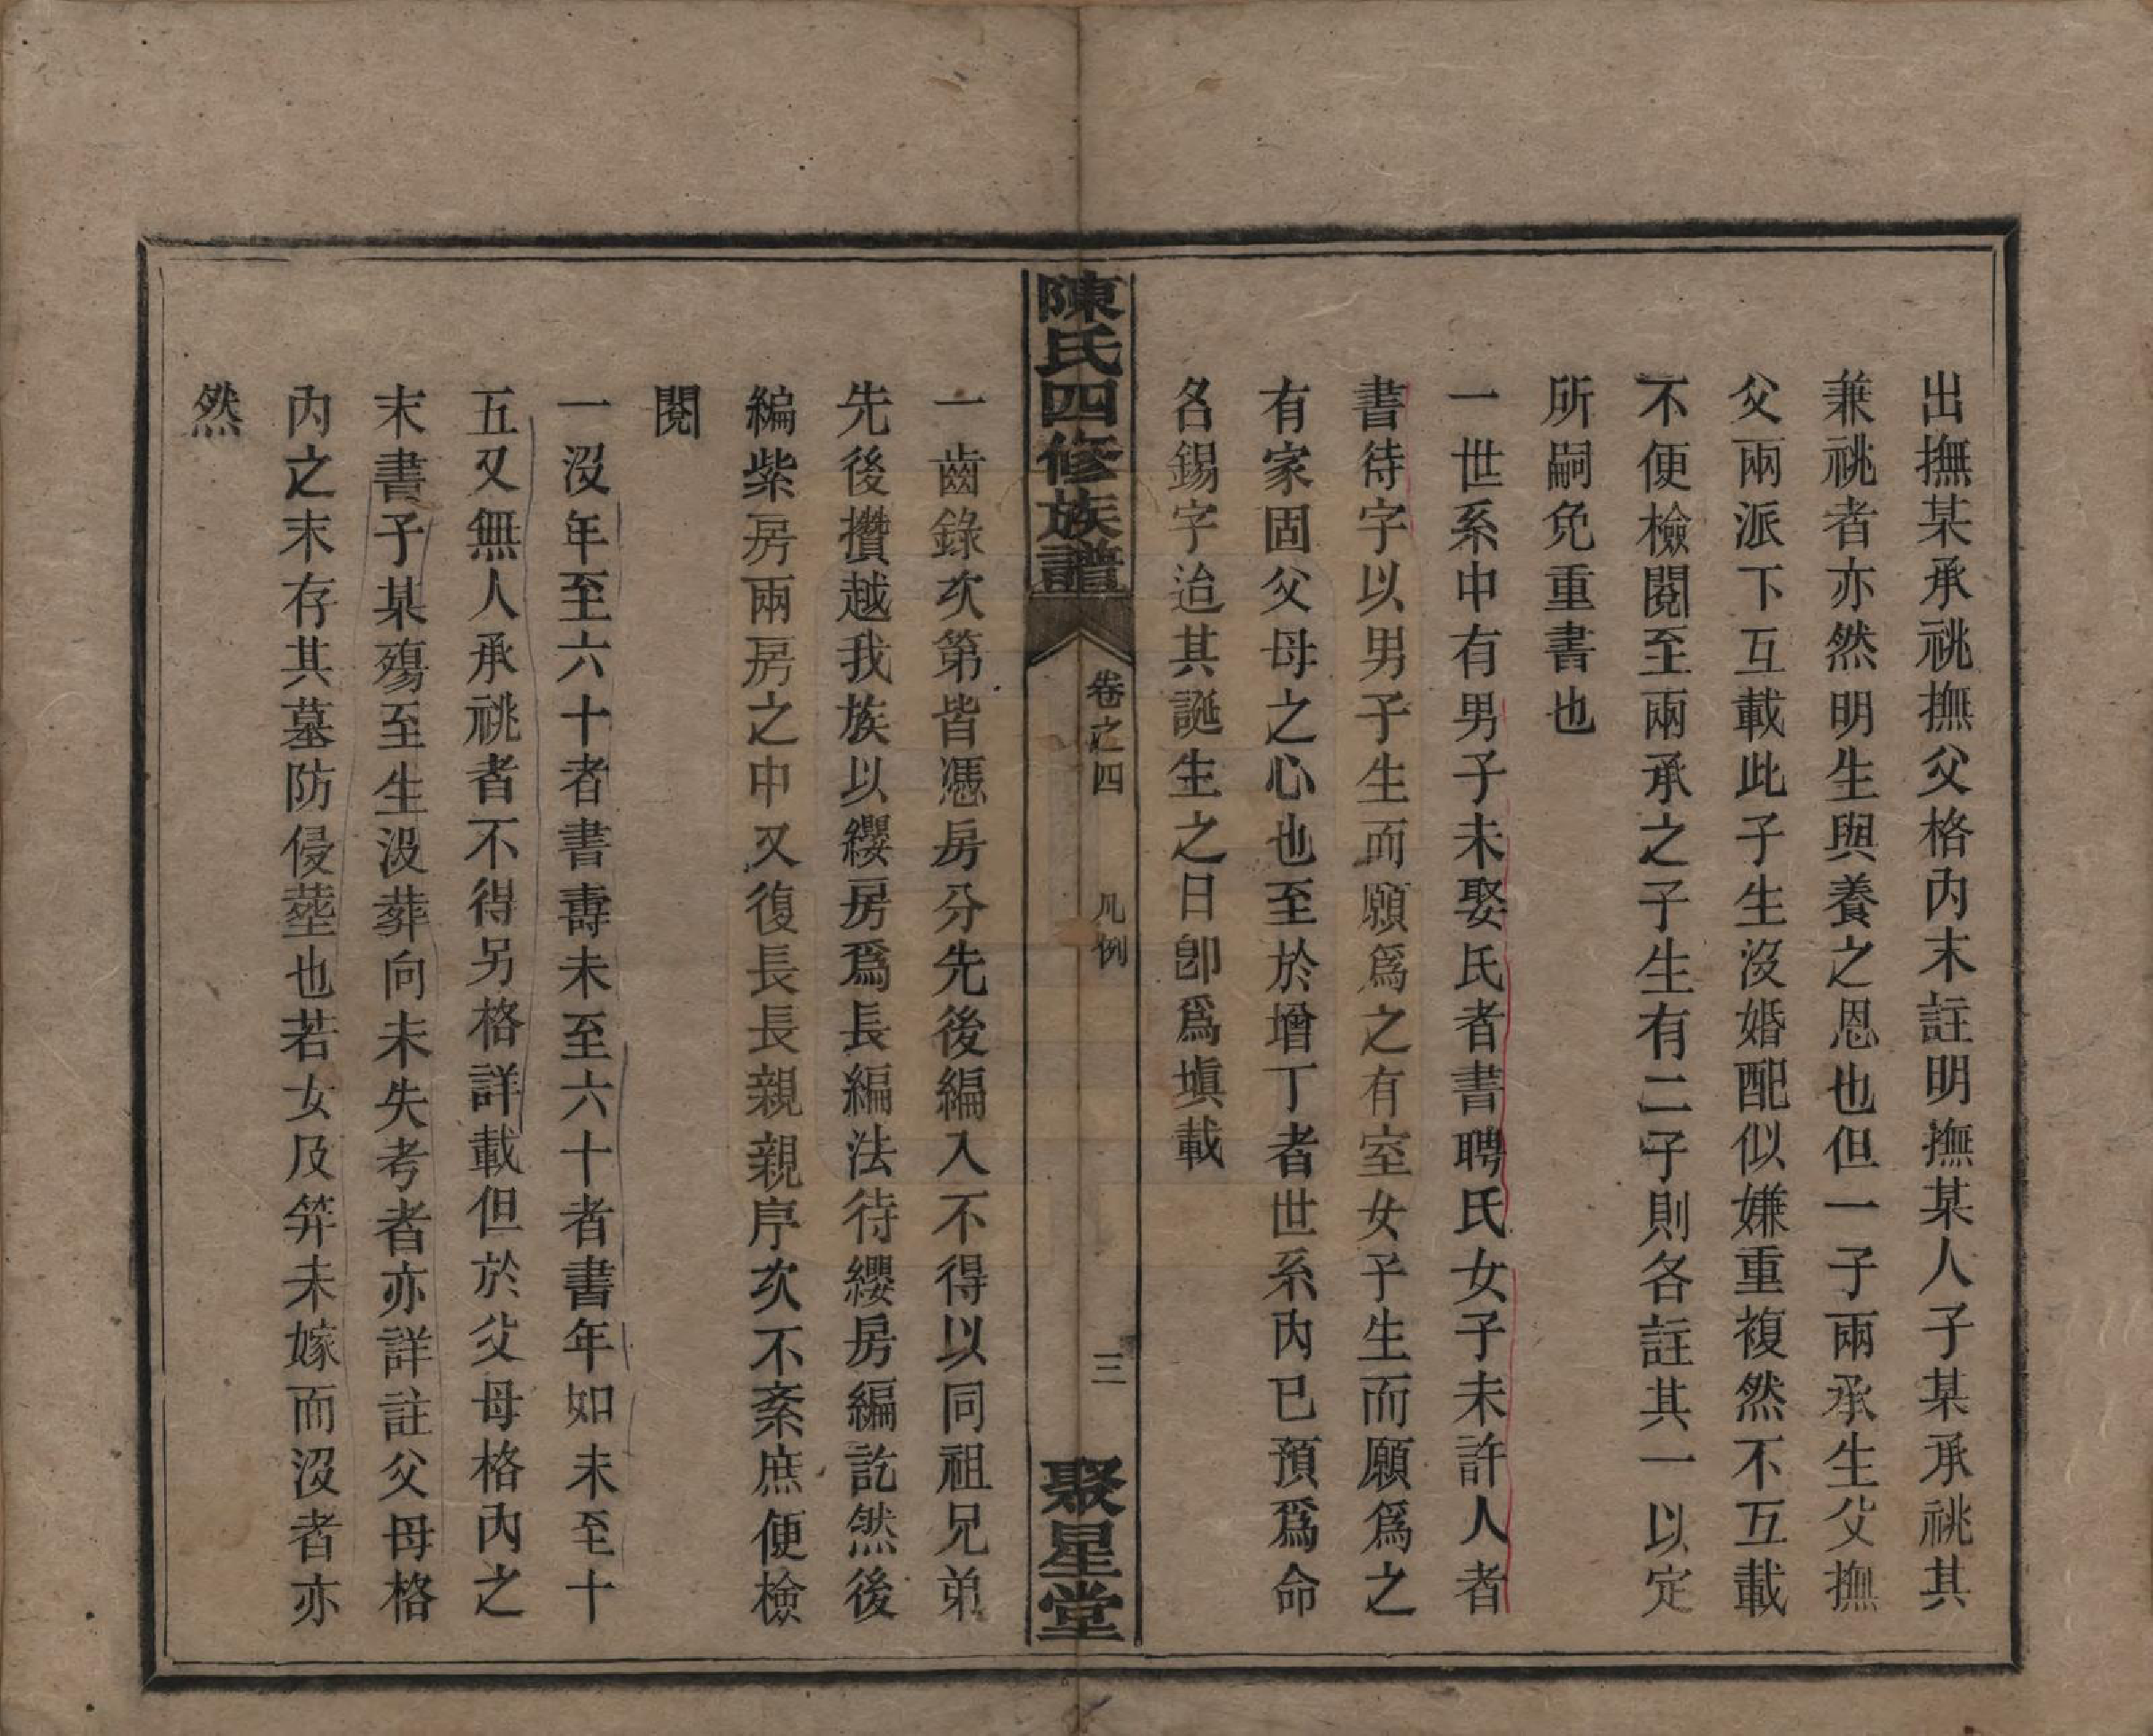 出撫某承祧撫父格內末註明撫某人子某承祧其
兼祧者亦然明生與養之恩也但一子兩承生父撫
父兩派下互載此子生沒婚配似嫌重複然不互載
不便檢閱至兩承之子生有二子則各註其一以定
所嗣免重書也
一世系中有男子未娶氏者書聘氏女子未許人者
書待字以男子生而願爲之有室女子生而願爲之
有家固父母之心也至於增丁者世系內已預爲命
名錫字迨其誕生之日卽爲塡載
陳氏四修族譜
卷之四
凡例
三
聚星堂
一齒錄次第皆憑房分先後編入不得以同祖兄弟
先後攢越我族以纓房爲長編法待纓房編訖然後
編紫房兩房之中又復長長親親序次不紊庶便檢
閱
一沒年至六十者書壽未至六十者書年如未至十
五又無人承祧者不得另格詳載但於父母格內之
末書子某殤至生沒葬向未失考者亦詳註父母格
內之末存其墓防侵塟也若女及笄未嫁而沒者亦
然